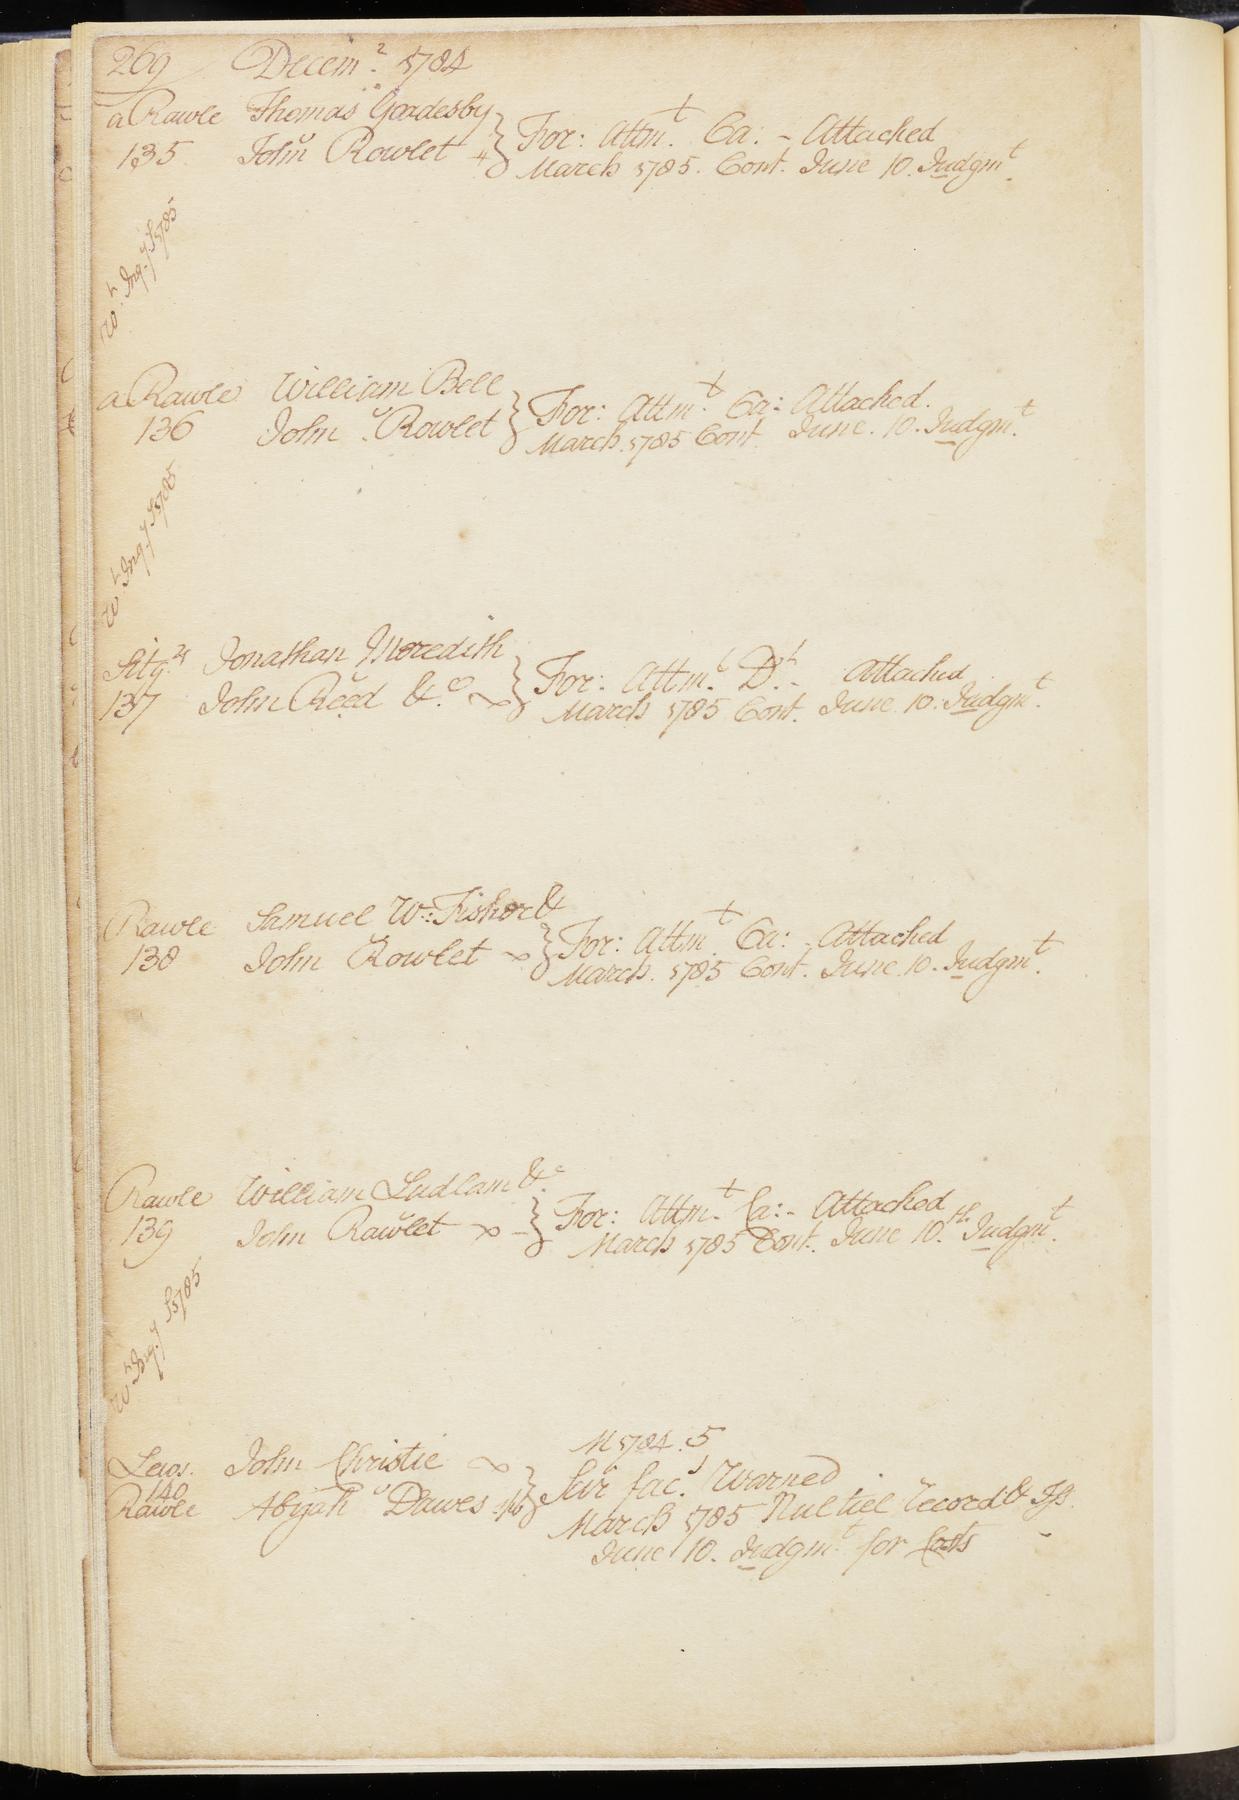 269 Decemr. 1784
a Rawle Thomas Goadesby
135 John Rowlet
For: Attmt. Ca: - Attached
March 1785. Cont. June 10. Judgmt.
Wt. Inqy S 1785
a Rawle William Bell
136 John Rowlet
For: Attmt. Ca: Attached.
March. 1785 Cont. June. 10. Judgmt.
Wt. Inqy S 1785
137 Jonathan Meredith
John Reed &c.
For: Attmt. Dt. - Attached
March 1785 Cont. June 10. Judgmt.
Rawle Samuel W: Fisher &
138 John Rowlet
For: Attmt. Ca: - Attached
March. 1785 Cont. June. 10. Judgmt.
Rawle William Ludlam &c.
139 John Rawlet
For: Attmt. Ca: - Attached
March 1785 Cont. June 10th. Judgmt.
Wt. Inqy S 1785
M 1784. 5
Lews. John Christie
140
Rawle Abijah Dawes
Scir facs. Warned
March 1785 Nul tiel record & Is.
June 10. Judgmt for Costs